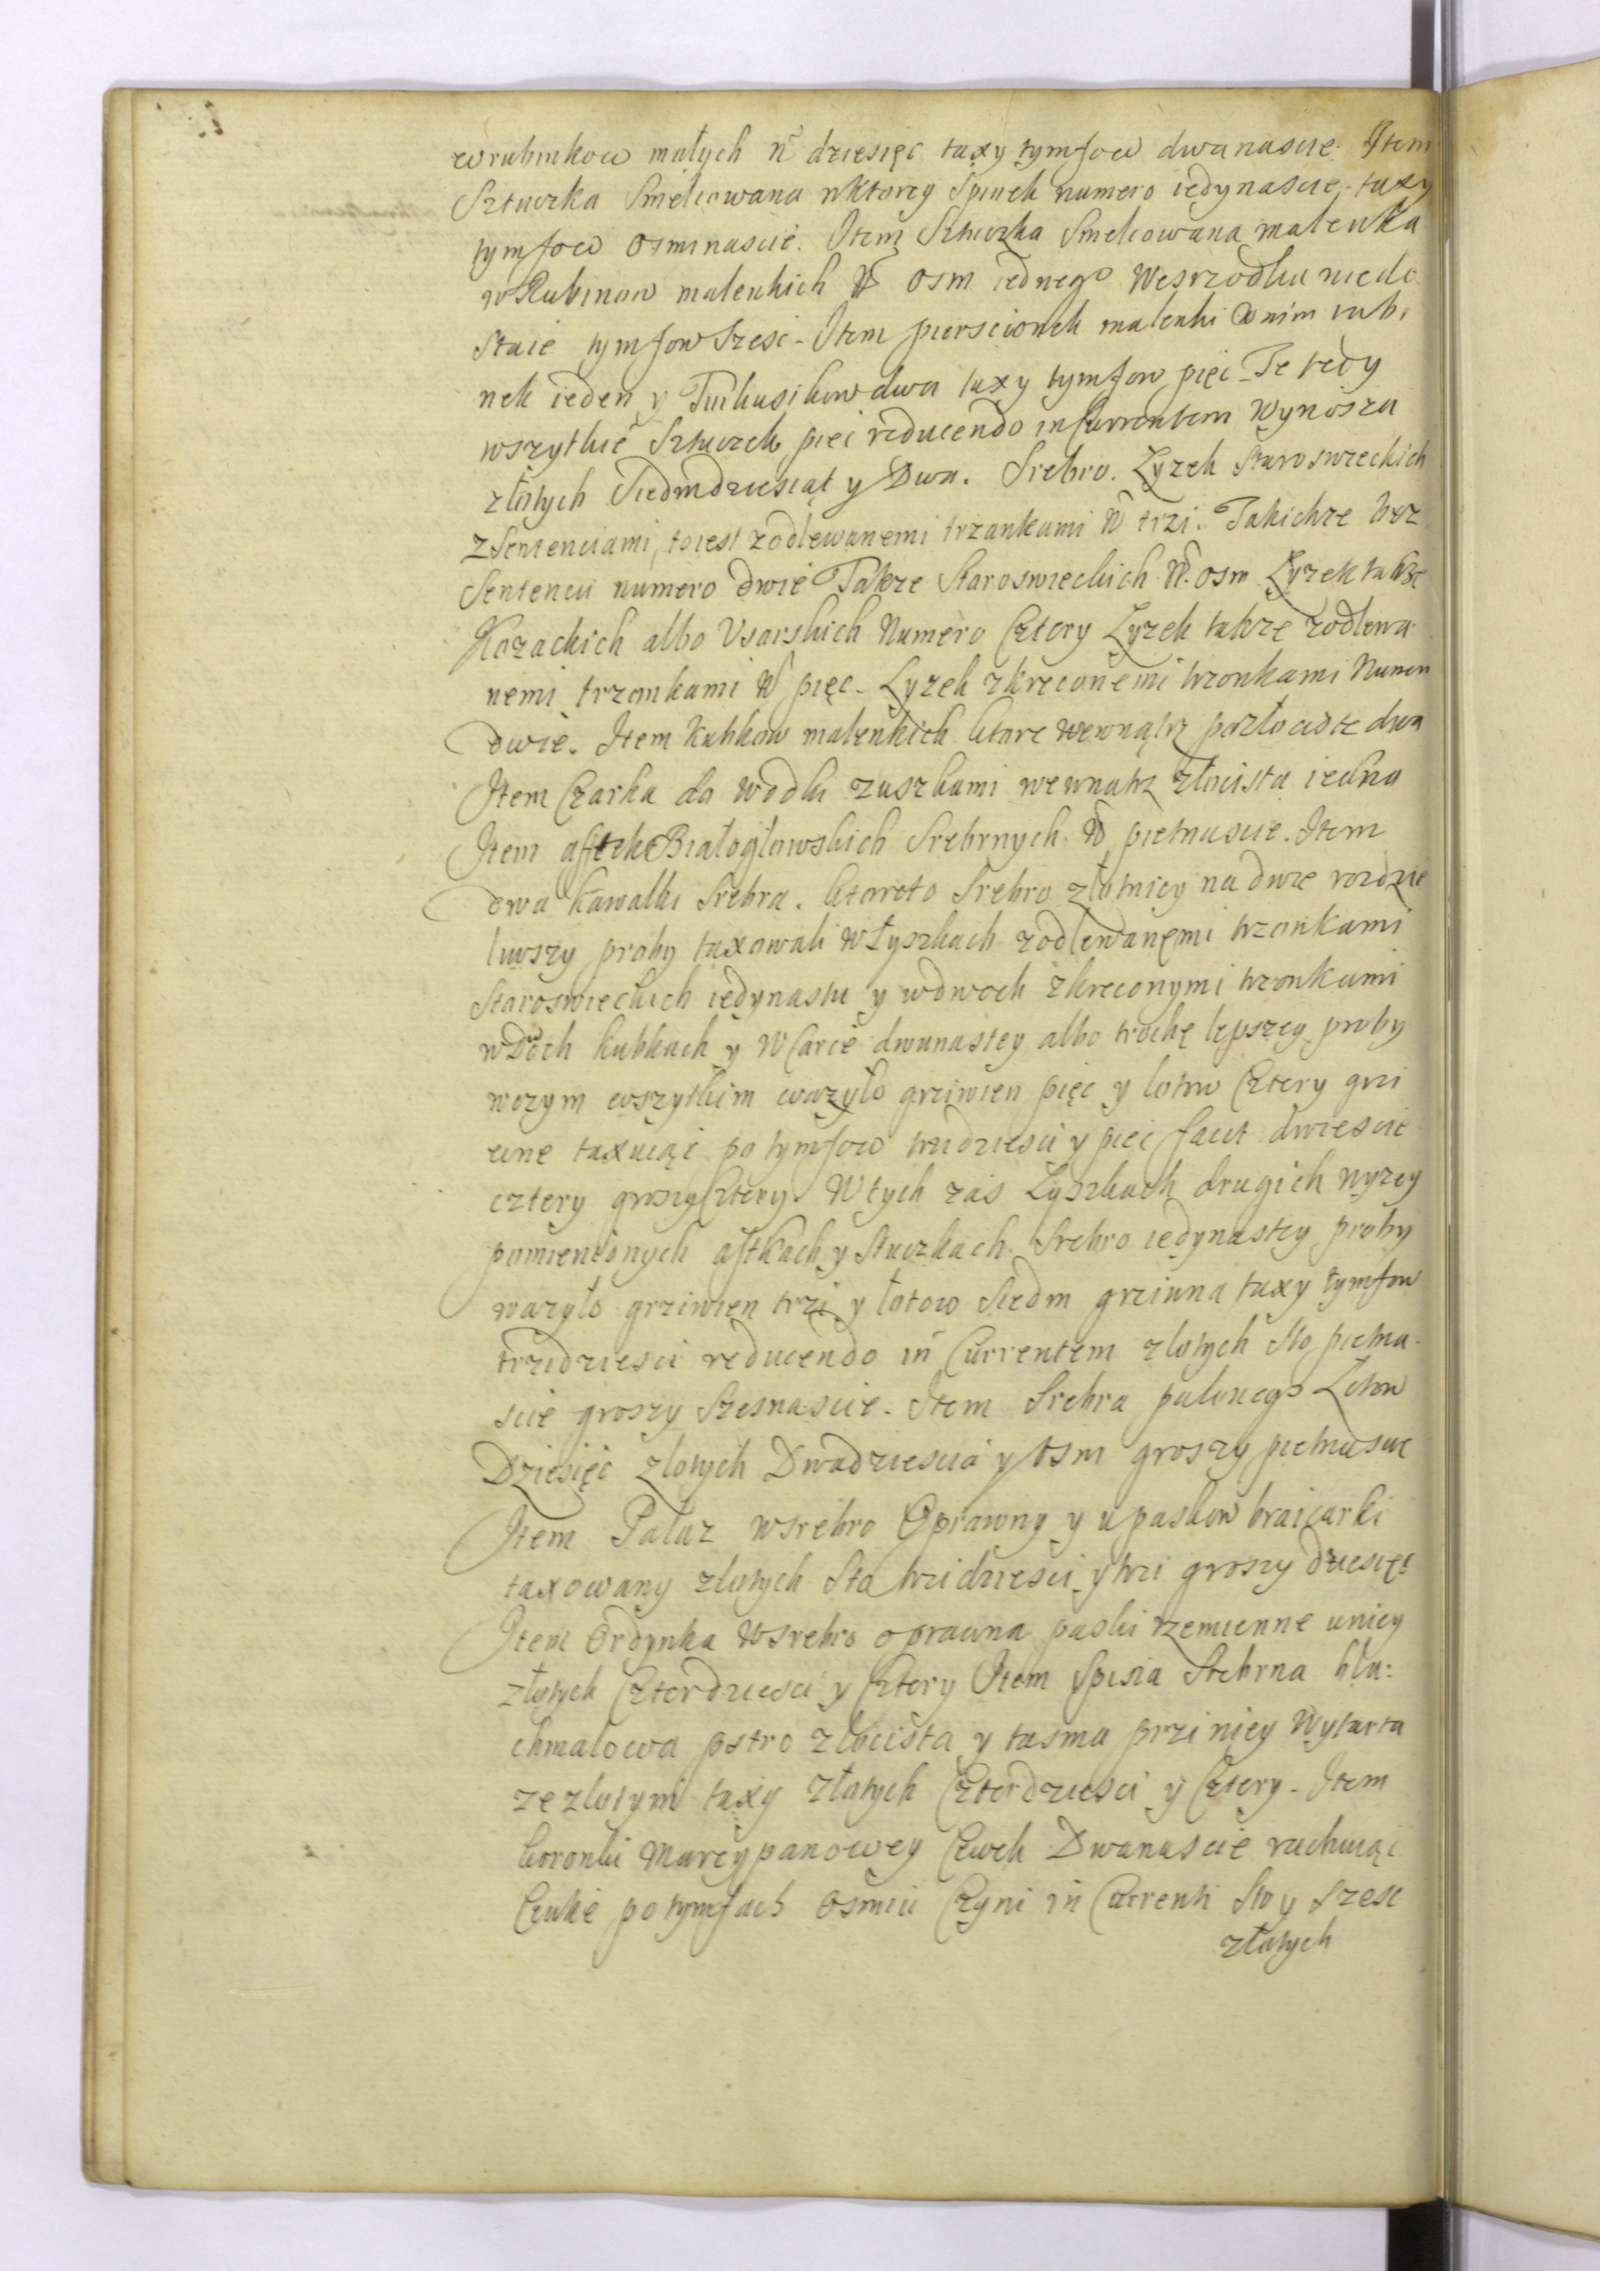 w rubinkow małych N dziesięc taxy tymfow dwanascie Item
Sztuczka Smelcowana w ktorey Spinek numero iedynascie taxy
tymfow osmnascie. Item Sztuczka Smelcowana malenka
w Rubinow malenkich N osm iednego Wesrzodku niedo
staie tymfow szesc - Item pierscionek malenki w nim rubi
nek ieden y Turkusikow dwa taxy tymfow pięc - Te tedy
wszytkie Sztuczek pięc reducendo in Currentem wynosza
złotych Siedmdziesiąt y Dwa. Srebro. Łyzek Staroswieckich
z Sentenciami, to iest z odlewanemi trzankami N trzi. Takichze bez
Sentencii numero dwie Takze Staroswieckich N. osm Łyzek takze
Kozackich albo Usarskich Numero Cztery Łyzek takze z odlewa
nemi trzonkami N pięc - Łyzek z kreconemi trzonkami Numero
dwie. Item kubkow malenkich ktore wewnątrz pozłociste dwa
Item Czarka do wodki z uszkami wewnatrz złocista iedna
Item aftek Białogłowskich Srebrnych N pietnascie. Item
dwa kawałki Srebra. ktoreto Srebro złotnicy na dwie rozdzie
liwszy proby taxowali w Łyszkach z odlewanęmi trzonkami
Staroswieckich iedynastu y w dwoch z kreconymi trzonkami
w dwoch kubkach y w Carce dwunastey albo trochę lepszey proby
w czym wszytkim ważyło grziwien pięc y lotow Cztery grzi
wne taxuiąc po tymfow trzidziesci y pięc facit dwiescie
cztery groszy Cztery. W tych zas Łyszkach drugich wyzey
pomienionych aftkach y Stuczkach. Srebro iedynastey proby
wazyło grziwien trzi y łotow Siedm grziwna taxy tymfow
trzidziesci reducendo in Currentem złotych Sto pietna-
scie groszy Szesnascie. Item Srebra palonego Łotow
Dziesięc złotych Dwadziescia y Osm groszy pietnascie
Item Pałaz w srebro Oprawny y u paskow braicarki
taxowany złotych Sto trzidziesci y trzi groszy dziesięc
Item Ordynka w srebro oprawna paski rzemienne u niey
złotych Czterdziesci y Cztery Item Spisia Srebrna bla:
chmalowa pstro złocista y tasma przi niey wytarta
ze złotym taxy złotych Czterdziesci y Cztery - Item
koronki Marcypanowey Cewek Dwanascie rachuiąc
Cewke po tymfach osmiu Czyni in Currenti Sto y szesc
złotych